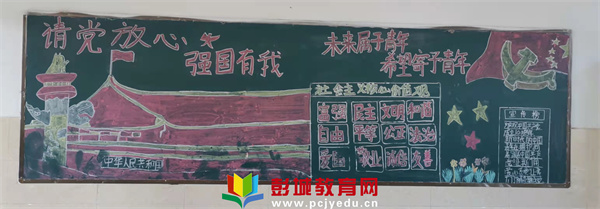 请党放心
强国有我
未来属于青年
希望寄予青年
社会主义核心价值观
富强 民主 文明 和谐
自由 平等 公正 法治
爱国 敬业 诚信 友善
中华人民共和国
宣传栏
彭城教育网
www.pcjyedu.cn